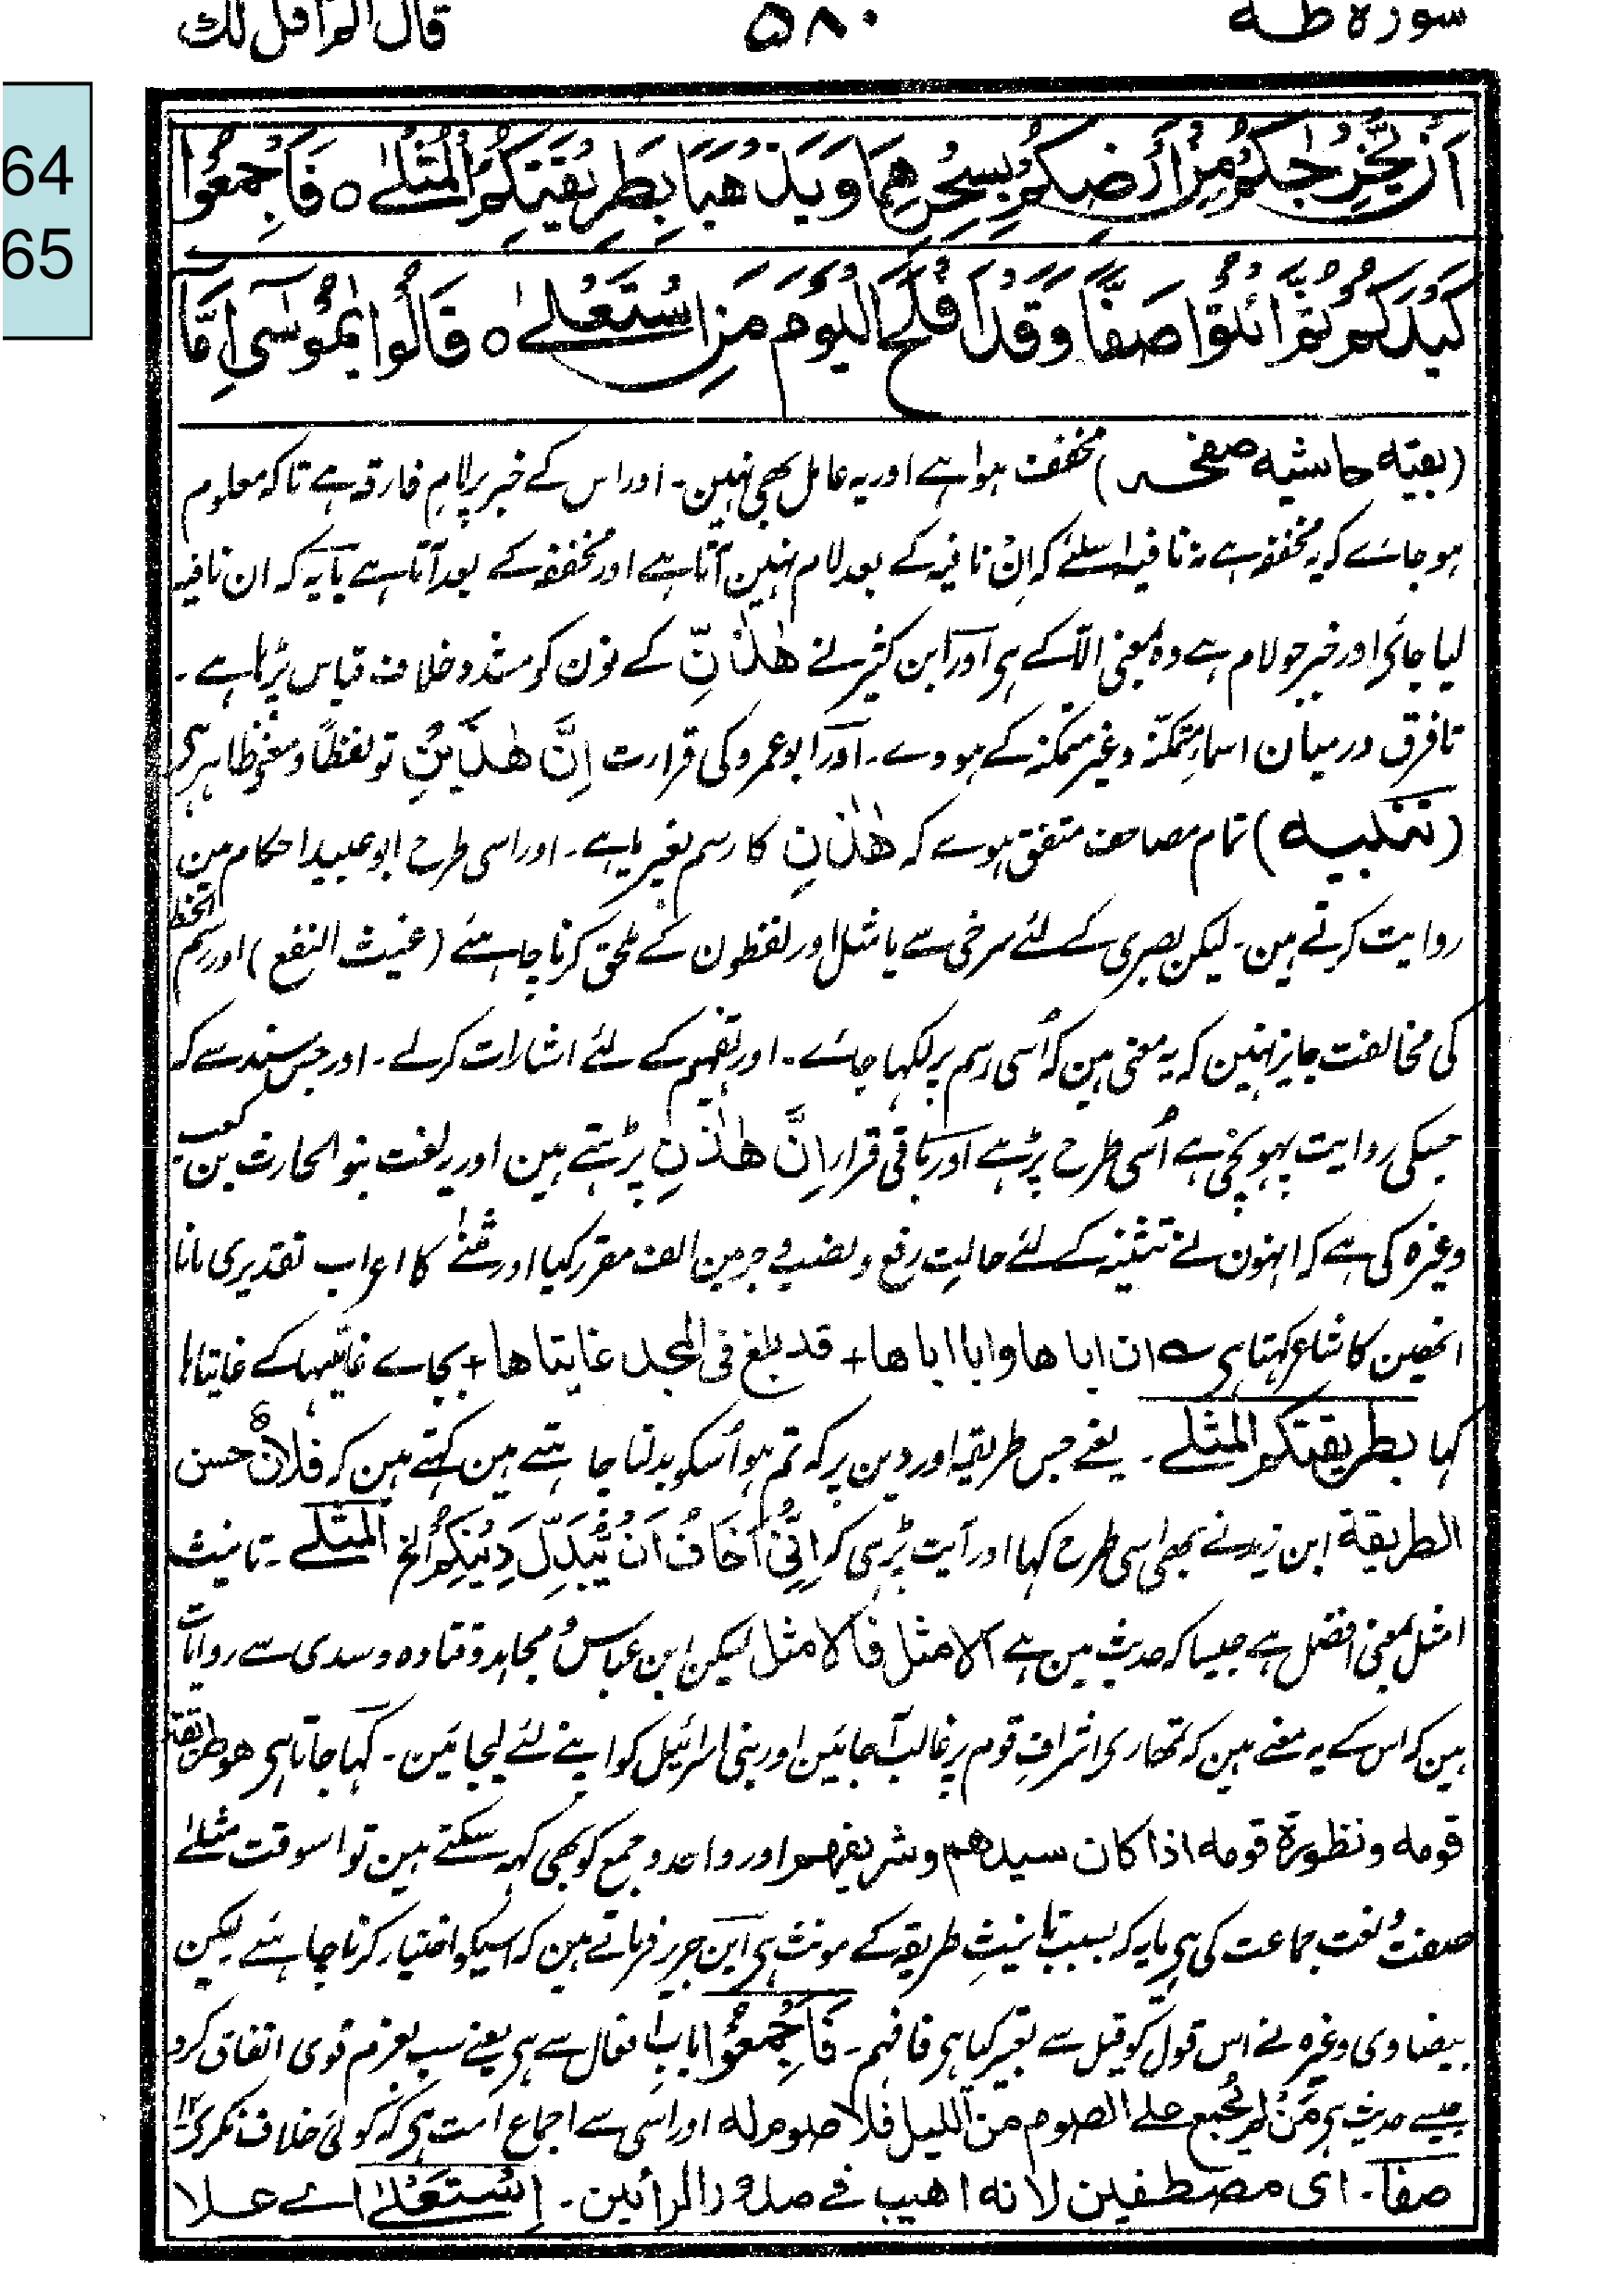 سورہ طہ
۵۸۰
قال الم اقل لك
64
65
اَنْ يُّخْرِجٰكُمْ مِّنْ اَرْضِكُمْ بِسِحْرِهِمَا وَيَذْهَبَا بِطَرِيْقَتِكُمُ الْمُثْلٰے ○ فَاَجْمِعُوْا
كَيْدَكُمْ ثُمَّ ائْتُوْا صَفًّا وَقَدْ اَفْلَحَ الْيَوْمَ مَنِ اسْتَعْلٰے ○ قَالُوْا يٰمُوْسٰٓى اِمَّآ
(بقیہ حاشیہ صفحہ) مخفف ہوا ہے اور یہ عامل بھی نہین۔ اور اس کے خبر پر لام فارقہ ہے تاکہ معلوم
ہو جاے کہ یہ مخففہ ہے نہ نافیہ اسلئے کہ اِنْ نافیہ کے بعد لام نہین آتا ہے اور مخففہ کے بعد آتا ہے یا یہ کہ ان نافیہ
لیا جائے اور خبر جو لام ہے وہ بمعنی الّا کے ہی اور ابن کثیر نے هٰذٰنِّ کے نون کو مشدد خلاف قیاس پڑہا ہے۔
تا فرق درمیان اسماء متمکنہ و غیر متمکنہ کے ہو وے۔ اور ابو عمرو کی قرارت اِنَّ هٰذَيْنِ تو لفظاً و معنیً ظاہر ہی
(تنبیہ) تمام مصاحف متفق ہوے کہ هٰذٰنِ کا رسم بغیر یا ہے۔ اور اسی طرح ابو عبید احکام من
روایت کرتے ہین۔ لیکن بصری کے لئے سرخی سے یا مثل اور لفظون کے ملحق کرنا چاہئے (غیث النفع) اور رسم الخط
کی مخالفت جایز نہین کہ یہ معنی ہین کہ اُسی رسم پر لکہا جاے۔ اور تفہیم کے لئے اشارات کرلے۔ اور جس سند سے کہ
جسکی روایت پہونچی ہے اُسی طرح پڑہے اور باقی قرار اِنَّ هٰذٰنِ پڑہتے ہین اور یہ لغت بنو الحارث بن کعب
وغیرہ کی ہے کہ انہون نے تثنیہ کے لئے حالتِ رفع و نصب و جر مین الف مقرر کیا اور مثنٰے کا اعراب تقدیری مانا
انھین کا شاعر کہتا ہی ؎ ان اباها وابا اباها + قد بلغ فی المجد غایتاها + بجاے غایتیہا کے غایتاہا
کہا بطریقتکم المثلے۔ یعنے جس طریقہ اور دین پر کہ تم ہو اُسکو بدلنا چاہتے ہین کہتے ہین کہ فلانٌ حسن
الطریقة ابن زید نے بھی اسی طرح کہا اور آیت پڑہی کہ اِنِّیْ اَخَافُ اَنْ یُّبَدِّلَ دِیْنَکُمْ الخ المثلے۔ تانیث
امثل بمعنی افضل ہے جیسا کہ حدیث مین ہے الامثل فالامثل لیکن ابن عباس و مجاہد و قتادہ و سدی سے روایات
ہین کہ اس کے یہ معنے ہین کہ تمھاری اشرافِ قوم پر غالب آجائین اور بنی اسرائیل کو اپنے لئے لیجائین۔ کہا جاتا ہی هو طریقة
قومه ونظورة قومه اذا كان سيدهم وشريفهم اور واحد و جمع کو بھی کہہ سکتے ہین تو اسوقت مثلے
صفت و لغت جماعت کی ہی یا یہ کہ بسبب تانیثِ طریقہ کے مونث ہی ابن جریر فرماتے ہین کہ اسیکو اختیار کرنا چاہئے لیکن
بیضاوی وغیرہ نے اس قول کو قیل سے تعبیر کیا ہی فافہم۔ فَاَجْمِعُوْا باب افعال سے ہی یعنے سب بعزم قوی اتفاق کرو
جیسے حدیث ہی مَنْ لم یُجمع علی الصوم من اللیل فلا صوم له اور اسی سے اجماع امت ہی کہ کوئی خلاف نکرے ۱۲
صفا۔ ای مصطفین لانه اهیب فے صدور الرائین۔ اِسْتَعْلٰے اے علا